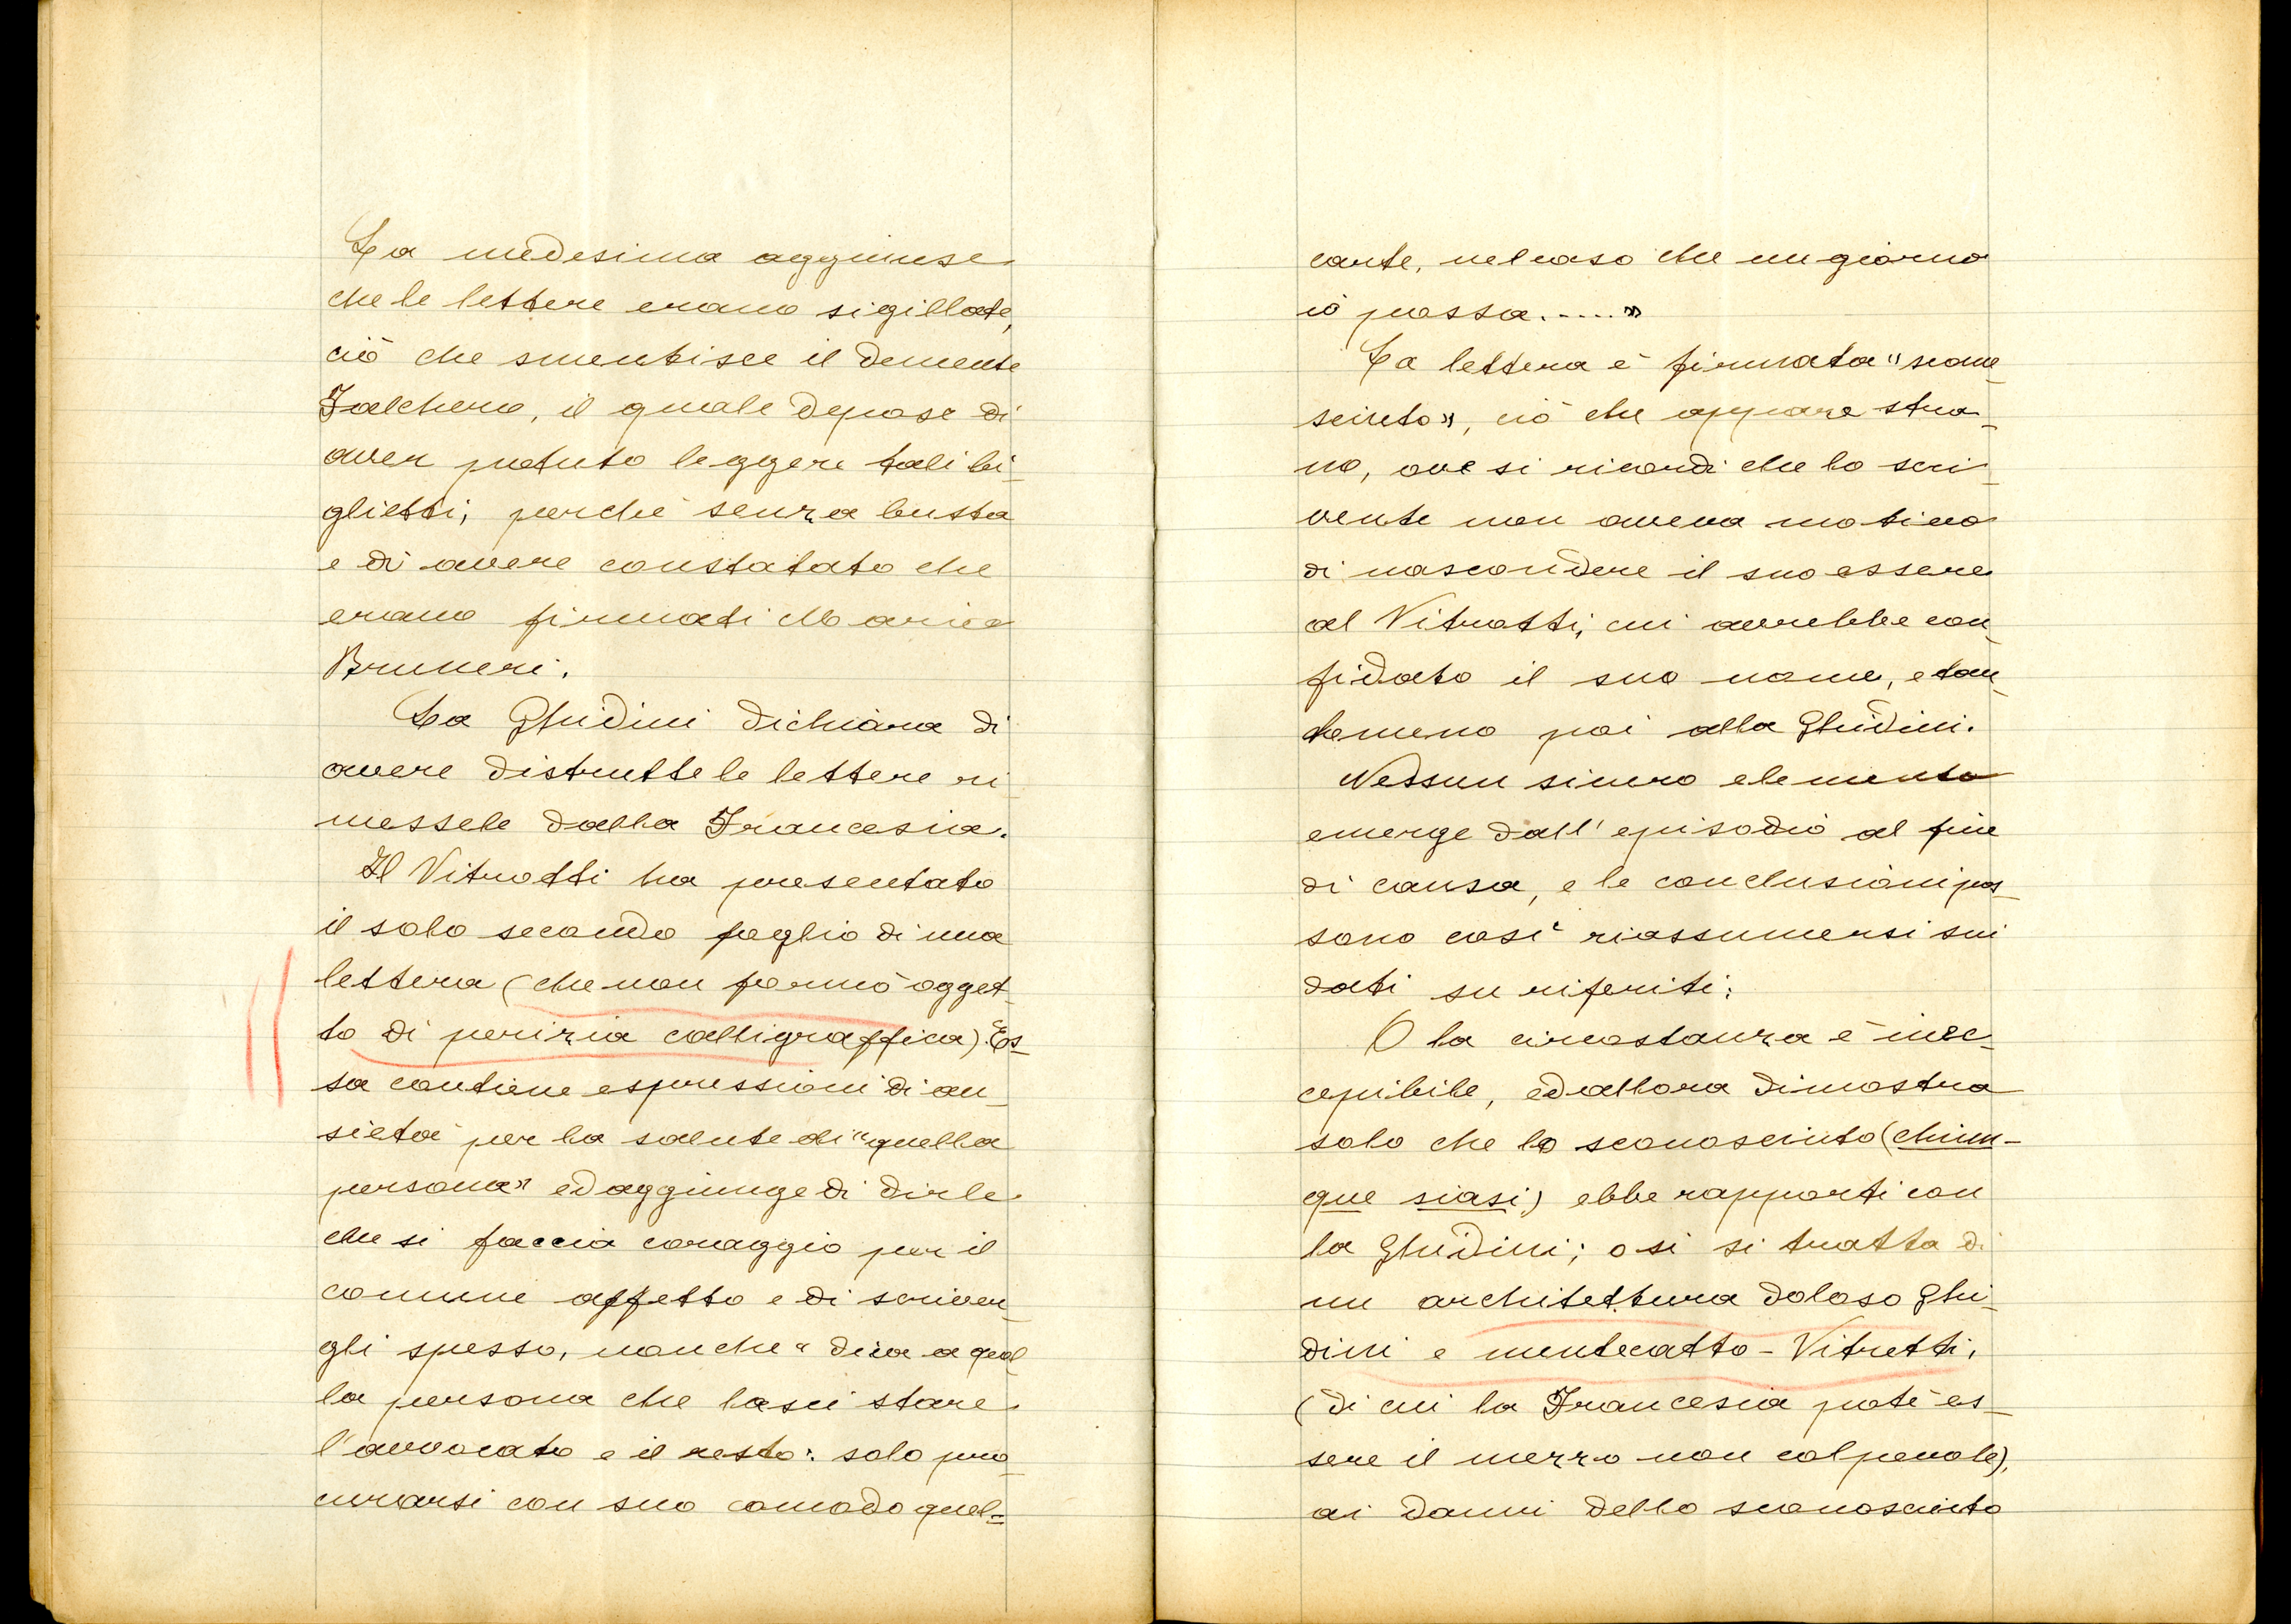 La medesima aggiunse
che le lettere erano sigillate,
ciò che smentisce il demente
Falchero, il quale depose di
aver potuto leggere tali bi-
glietti, perchè senza busta
e di avere constatato che
erano firmati Maria
Bruneri.
La Ghidini dichiara di
avere distrutte le lettere ri-
messele dalla Francesia.
Il Vitrotti ha presentato
il solo secondo foglio di una
lettera (che non formò ogget-
to di perizia calligraffica). Es-
sa contiene espressioni di an-
sietà per la salute di "quella
persona" ed aggiunge di dirle
che si faccia coraggio per il
comune affetto e di scriver-
gli spesso, nonche "dica a quel
la persona che lasci stare
l'avvocato e il resto: solo pro-
curarsi con suo comodo quel=
carte, nel caso che un giorno
iò possa....."
La lettera è firmata "scono-
sciuto", ciò che appare stra-
no, ove si ricordi che lo scri-
vente non aveva motivo
di nascondere il suo essere
al Vitrotti, cui avrebbe con-
fidato il suo nome, e tan-
tomeno poi alla Ghidini.
Nessun sicuro elemento
emerge dall'episodio al fine
di causa, e le conclusioni pos-
sono così riassumersi sui
dati su riferiti:
O la circostanza è inec-
cepibile, ed allora dimostra
solo che lo sconosciuto (chiun-
que siasi) ebbe rapporti con
la Ghidini; o si si tratta di
un architettura doloso Ghi-
dini e mentecatto - Vitrotti,
(di cui la Francesia potè es-
sere il mezzo non colpevole),
ai danni dello sconosciuto